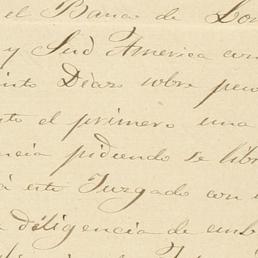 el Banco de Lon
y Sud America con
into Diaz sobre pes
to el primero una
ncia pidiendo se libr
á este Juzgado con
a diligencia de emb